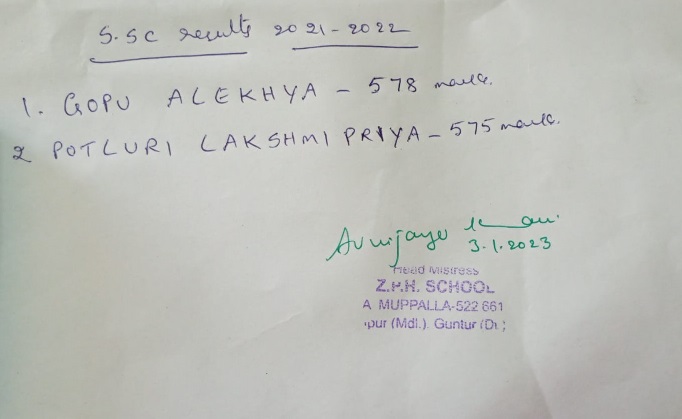 S.SC results 2021-2022
1. GOPU ALEKHYA - 578 marks.
2 POTLURI LAKSHMI PRIYA - 575 marks.
3.1.2023
Head Mistress
Z.P.H. SCHOOL
A MUPPALLA-522 661
pur (Mdl.). Guntur (Dt;